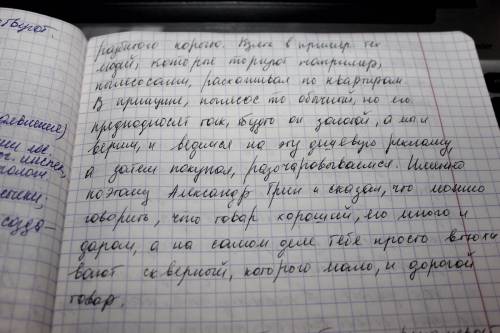 твуют.
явление)
рабного хорошо. Взять в пример тех
людей, которые торгуют например,
пылесосами, расхаживая по квартирам
В принципе, пылесос то обычный, но его
преподносят так, будто он золотой, а мы и
верим, и ведемся на эту дешевую рекламу,
а затем покупая, разочаровываемся. Именно
поэтому Александр Грин и сказал, что можно
говорить, что товар хороший, его много и
даром, а на самом деле тебе просто втюхи
вают скверный, которого мало, и дорогой
товар.